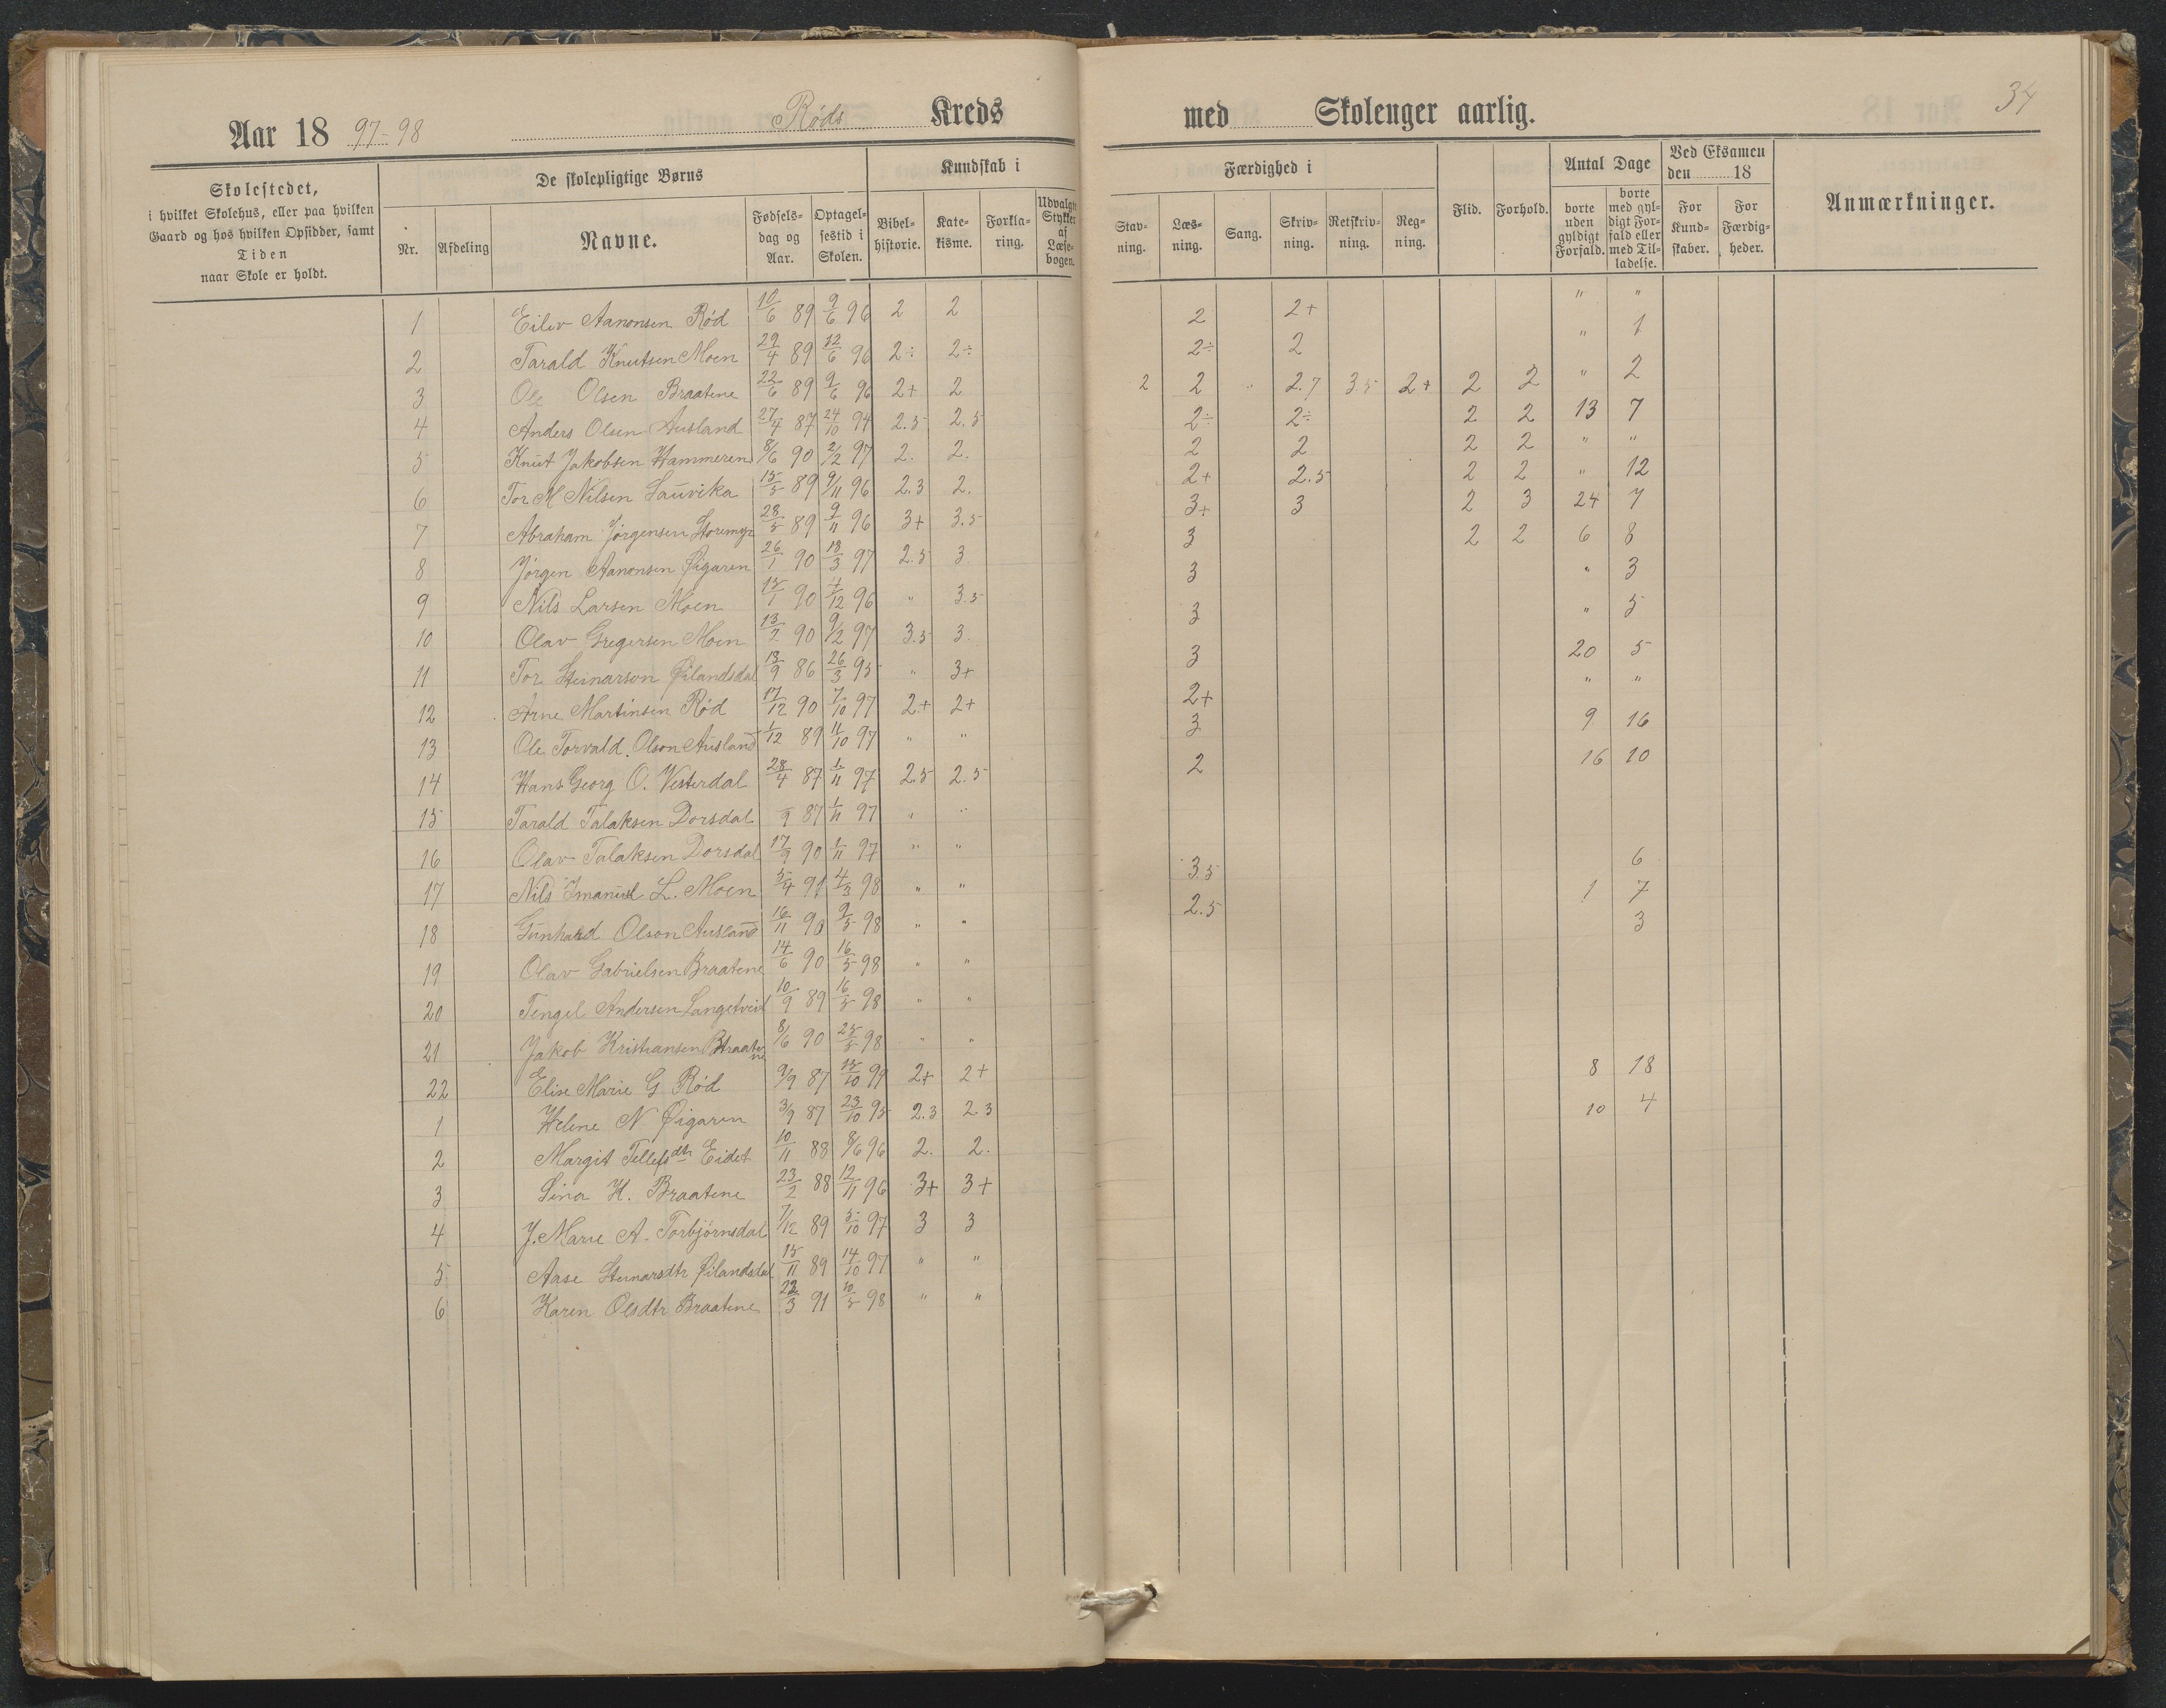 Aar 18 97-98 Røds Kreds
med Skolenger aarlig. 34
Skolestedet,
i hvilket Skolehus, eller paa hvilken
Gaard og hos hvilken Opsidder, samt
Tiden
naar Skole er holdt.
De skolepligtige Børns
Nr. Afdeling Navne. Fødsels-dag og Aar. Optagel-sestid i Skolen.
Kundskab i
Bibel-historie. Kate-kisme. Forkla-ring. Udvalgte Stykker af Læse-bogen.
Færdighed i
Stav-ning. Læs-ning. Sang. Skriv-ning. Retskriv-ning. Reg-ning.
Flid. Forhold.
Antal Dage
borte uden gyldigt Forfald. borte med gyl-digt For-fald eller med Til-ladelse.
Ved Eksamen den 18
For Kund-skaber. For Færdig-heder.
Anmærkninger.
1 Eilev Aanonsen Rød 10/6 89 9/6 96 2 2 2 2+ " "
2 Tarald Knutsen Moen 29/4 89 12/6 96 2÷ 2÷ 2÷ 2 " 1
3 Ole Olsen Braatene 22/6 89 9/6 96 2+ 2 2 2 " 2.7 3.5 2+ 2 2 " 2
4 Anders Olsen Ausland 27/4 87 24/10 94 2.5 2.5 2÷ 2÷ 2 2 13 7
5 Knut Jakobsen Hammeren 8/6 90 2/2 97 2. 2. 2 2 2 2 " "
6 Tor M Nilsen Lauvika 15/5 89 9/11 96 2.3 2. 2+ 2.5 2 2 " 12
7 Abraham Jørgensen Storemyr 28/5 89 9/11 96 3+ 3.5 3+ 3 2 3 24 7
8 Jørgen Aanonsen Øigaren 26/1 90 18/3 97 2.5 3 3 2 2 6 8
9 Nils Larsen Moen 15/1 90 4/12 96 " 3.5 3 " 3
10 Olav Gregersen Moen 13/2 90 9/2 97 3.5 3 3 " 5
11 Tor Steinarson Øilandsdal 13/9 86 26/3 95 " 3+ 3 20 5
12 Arne Martinsen Rød 17/12 90 7/10 97 2+ 2+ 2+ " "
13 Ole Torvald Olson Ausland 1/12 89 11/10 97 " " 3 9 16
14 Hans Georg O. Vesterdal 28/4 87 1/11 97 2.5 2.5 2 16 10
15 Tarald Talaksen Dorsdal /9 87 1/11 97 " "
16 Olav Talaksen Dorsdal 17/9 90 1/11 97 " "
17 Nils Imanuel L. Moen 5/4 91 4/3 98 " " 3.5 6
18 Gunhard Olson Ausland 16/11 90 9/5 98 " " 2.5 1 7
19 Olav Gabrielsen Braatene 14/6 90 16/5 98 " " 3
20 Tengel Andersen Langetveid 10/9 89 16/5 98 " "
21 Jakob Kristiansen Braatene 8/6 90 25/5 98 " "
22 Elise Marie G Rød 9/9 87 15/10 99 2+ 2+ 8 18
1 Helene N Øigaren 3/9 87 23/10 95 2.3 2.3 10 4
2 Margit Tellefsdtr Eidet 10/11 88 8/6 96 2. 2.
3 Sina H. Braatene 23/2 88 12/11 96 3+ 3+
4 J. Marie A. Torbjørnsdal 7/12 89 5/10 97 3 3
5 Aase Steinarsdtr Øilandsdal 15/11 89 14/10 97 " "
6 Karen Olsdtr Braatene 22/3 91 10/5 98 " "